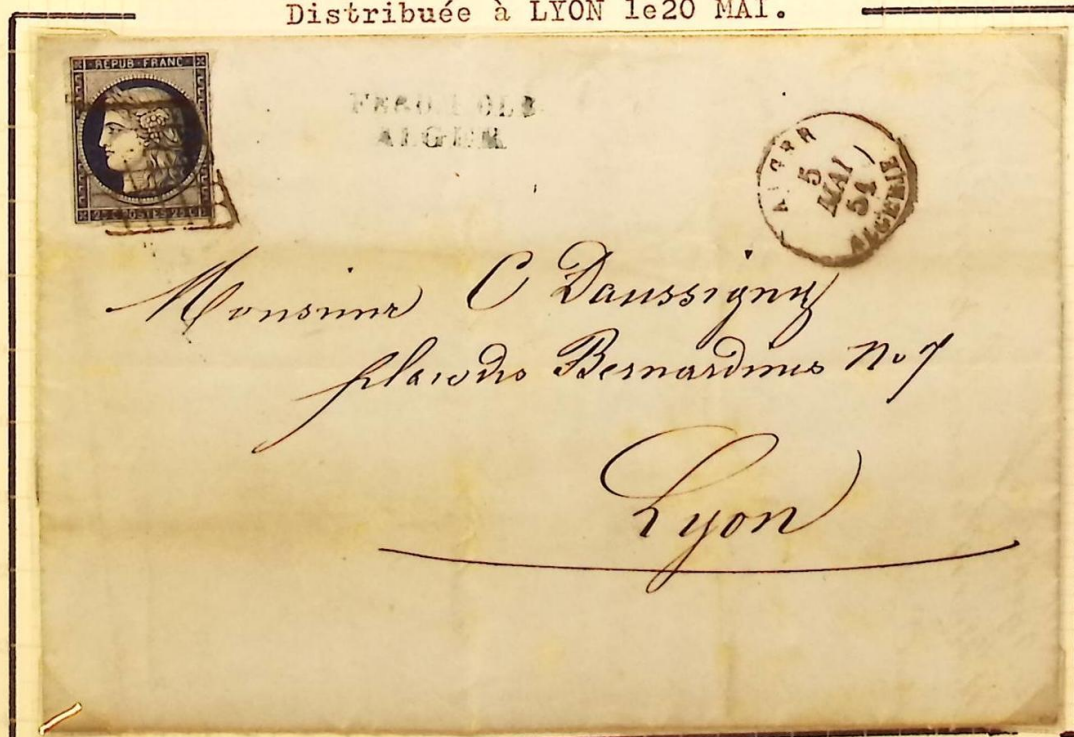 Distribuée à LYON le20 MAI.
REPUB FRANC
25 C POSTES 25 C
ALGER
ALGER
5
MAI
51
ALGERIE
Monsieur C Daussigny
place des Bernardines No 7
Lyon